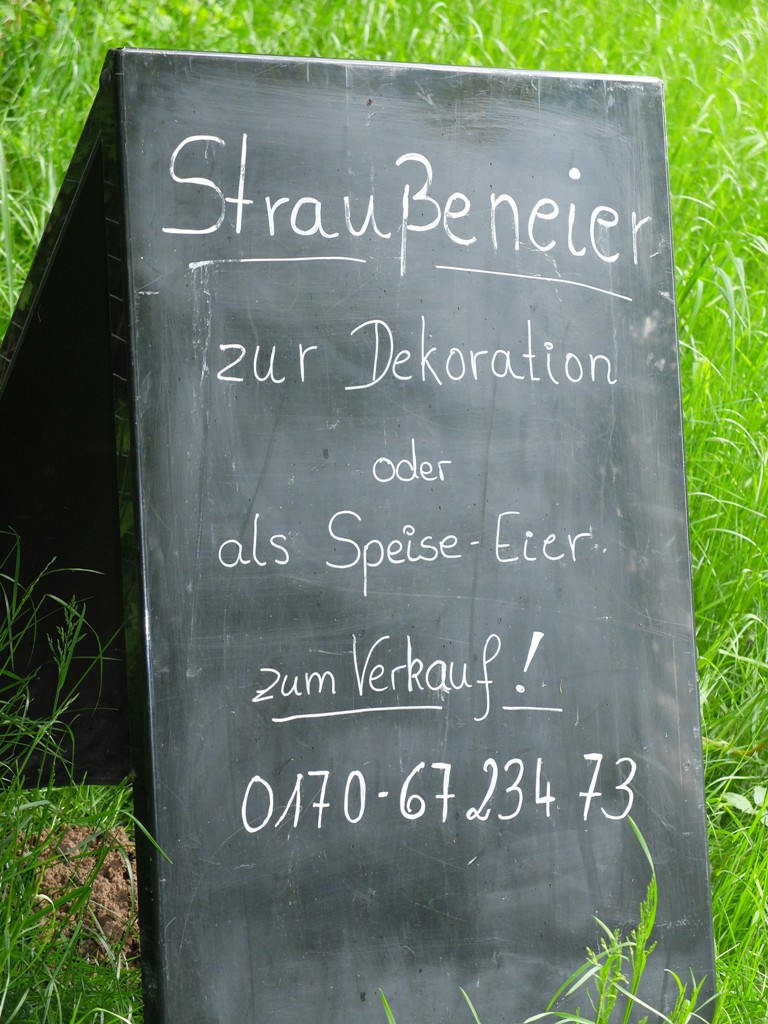 Straußeneier
zur Dekoration
oder
als Speise-Eier
zum Verkauf!
0170-67 234 73